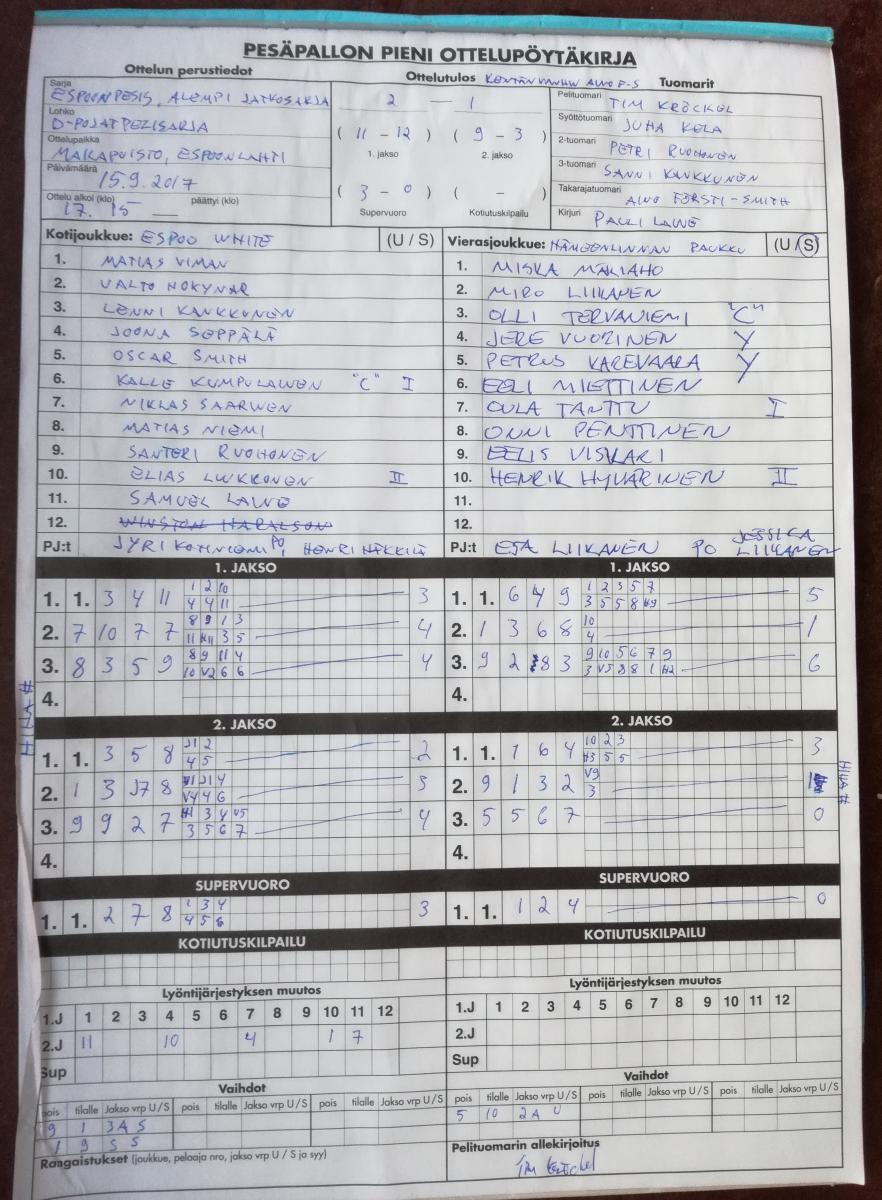 PESÄPALLON PIENI OTTELUPÖYTÄKIRJA
Ottelun perustiedot
Ottelutulos
Tuomarit
Sarja
ESPOONPESIS, ALEMPI JATKOSARJA
Lohko
D-POJAT PELISARJA
Ottelupaikka
MAKAPUISTO, ESPOONLAHTI
Päivämäärä
15.9.2017
Ottelu alkoi (klo) päättyi (klo)
17.15
2 — 1
( 11 - 12 ) ( 9 - 3 )
1. jakso 2. jakso
( 3 - 0 ) ( - )
Supervuoro Kotiutuskilpailu
Pelituomari TIM KRÖCKEL
Syöttötuomari JUHA KELA
2-tuomari PETRI RUOHONEN
3-tuomari SANNI KANKKUNEN
Takarajatuomari AINO FORSTI-SMITH
Kirjuri PAULI LAINE
Kotijoukkue: ESPOO WHITE (U / S)
1. MATIAS VIMAN
2. VALTO NOKYNAR
3. LENNI KANKKUNEN
4. JOONA SEPPÄLÄ
5. OSCAR SMITH
6. KALLE KUMPULAINEN "C" I
7. NIKLAS SAARINEN
8. MATIAS NIEMI
9. SANTERI RUOHONEN
10. ELIAS LUKKONEN II
11. SAMUEL LAINE
12. WINSTON HARALSON
PJ:t JYRI KOTINIEMI PO, HENRI HÄKKILÄ
Vierasjoukkue: HÄMEENLINNAN PAUKKU (U / S)
1. MISKA MÄKIAHO
2. MIRO LIIKANEN
3. OLLI TERVANIEMI "C"
4. JERE VUORINEN Y
5. PETRUS KAREVAARA Y
6. EELI MIETTINEN
7. OULA TANTTU I
8. ONNI PENTTINEN
9. EELIS VISKARI
10. HENRIK HYVÄRINEN II
11.
12.
PJ:t ESA LIIKANEN PO JESSIKA LIIKANEN
1. JAKSO
1. 1. 3 4 11 3
1 2 10
4 4 11
2. 7 10 7 7 4
8 9 1 3
3. 8 3 5 9 4
8 9 11 4
10 V2 6 6
4.
1. JAKSO
1. 1. 6 4 9 5
1 2 3 5 7
2. 1 3 6 8 1
10
4
3. 9 2 8 3 6
9 10 5 6 7 9
3 V5 8 8 1
4.
2. JAKSO
1. 1. 3 5 8 2
J1 2
4 5
2. 1 3 J7 8 3
V4 4 6
3. 9 9 2 7 4
3 5 6 7
4.
2. JAKSO
1. 1. 7 6 4 3
10 2 3
2. 9 1 3 2
V9
3
3. 5 5 6 7 0
4.
HILJA #
HILJA #
SUPERVUORO
1. 1. 2 7 8 3
1 3 4
4 5 6
SUPERVUORO
1. 1. 1 2 4 0
KOTIUTUSKILPAILU
KOTIUTUSKILPAILU
Lyöntijärjestyksen muutos
1.J 1 2 3 4 5 6 7 8 9 10 11 12
2.J 11 10 4 1 7
Sup
Lyöntijärjestyksen muutos
1.J 1 2 3 4 5 6 7 8 9 10 11 12
2.J
Sup
Vaihdot
pois tilalle Jakso vrp U / S pois tilalle Jakso vrp U / S pois tilalle Jakso vrp U / S
9 1 3A S
1 9 S S
Vaihdot
pois tilalle Jakso vrp U / S pois tilalle Jakso vrp U / S pois tilalle Jakso vrp U / S
5 10 2A U
Rangaistukset (joukkue, pelaaja nro, jakso vrp U / S ja syy)
Pelituomarin allekirjoitus
Tim Kröckel